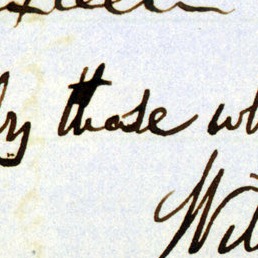 by those wh
Wil